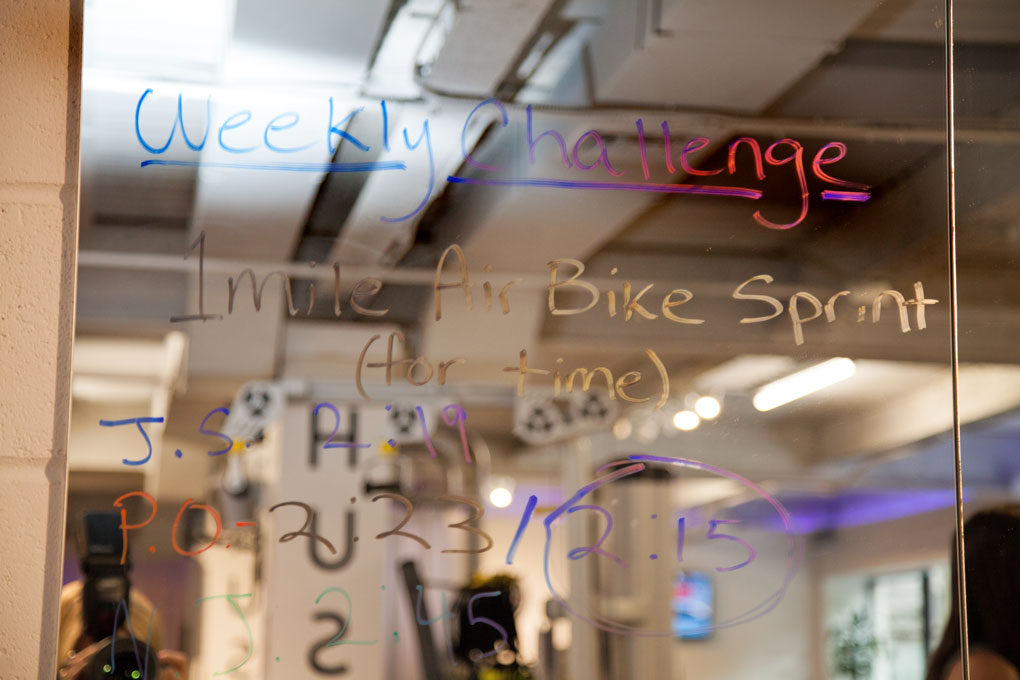 Weekly Challenge
1 mile Air Bike Sprint
(for time)
J.S 2:19
P.O.- 2:23 / 2:15
N J. 2:45
HUS